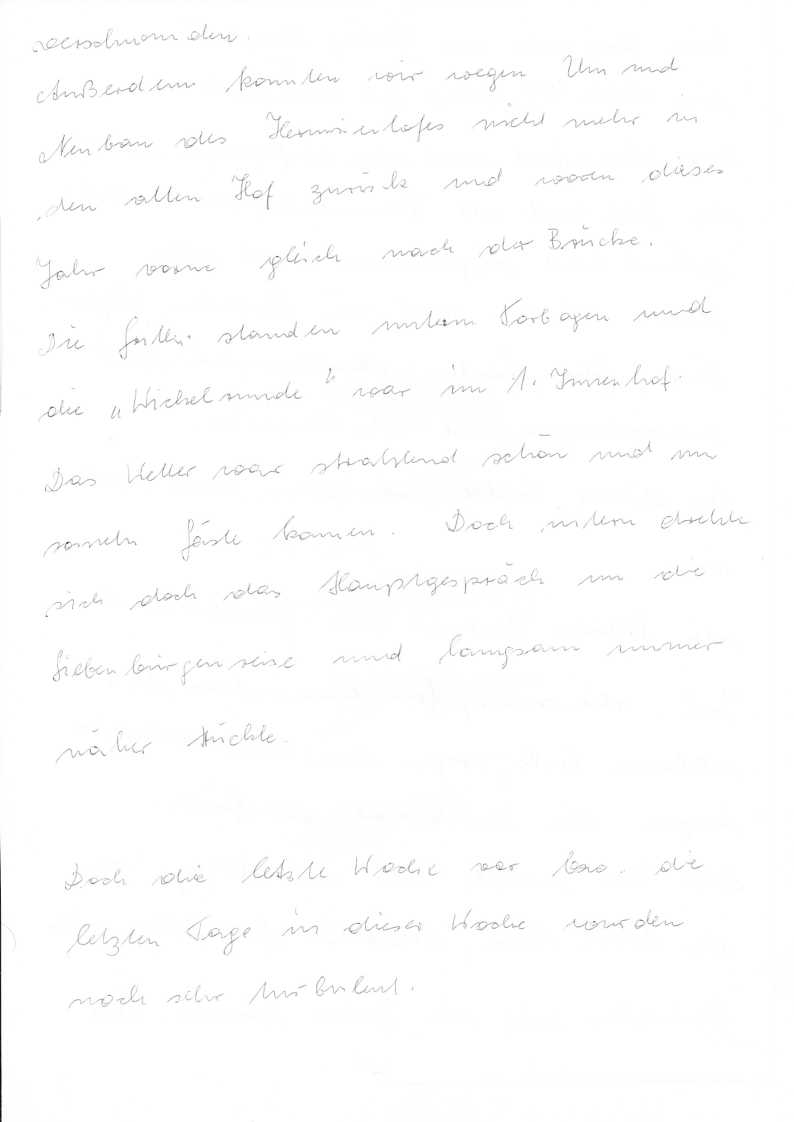 verschwunden.
Außerdem konnten wir wegen Um und
Neubau des Hermesienhofes nicht mehr in
den alten Hof zurück und waren dieses
Jahr vorne gleich nach der Brücke.
Die standen unterm Torbogen und
die „Wickelrunde" war im 1. Innenhof.
Das Wetter war strahlend schön und um
Gäste kamen. Doch intern drehte
sich doch das Hauptgespräch um die
Siebenbürgenreise und langsam immer
näher rückte.
Doch die letzte Woche vor bzw. die
letzten Tage in dieser Woche wurden
noch sehr turbulent.